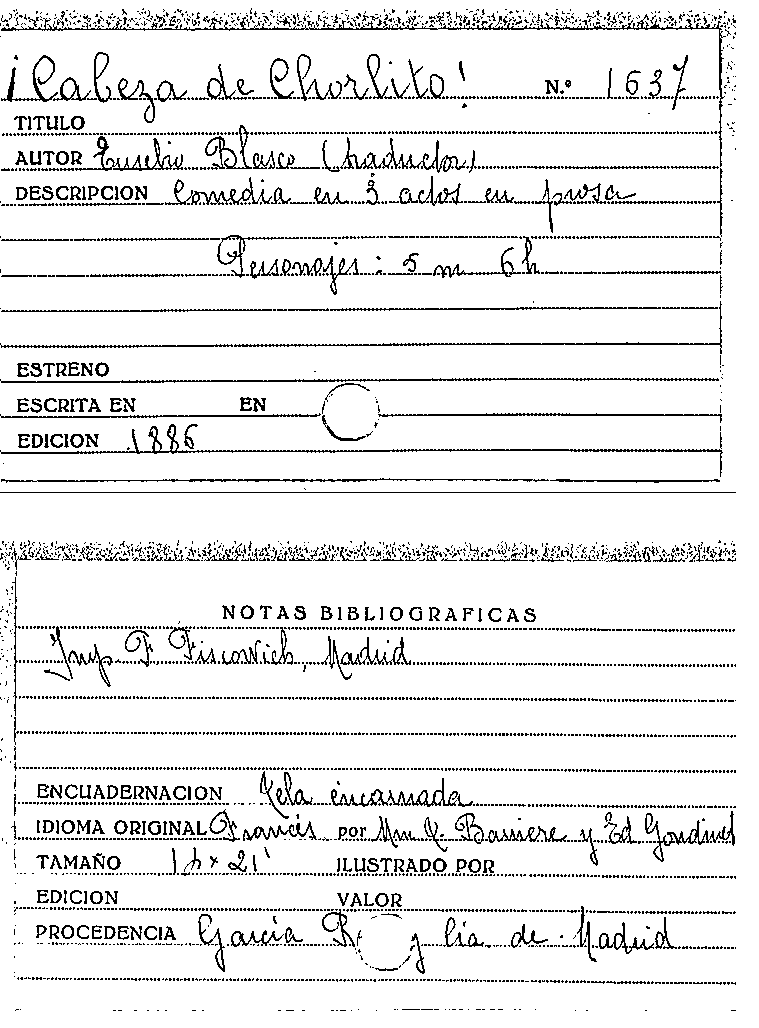 ¡Cabeza de Chorlito! N.º 1637
TITULO
AUTOR Eusebio Blasco (traductor)
DESCRIPCION Comedia en 3 actos en prosa
Personajes: 5 m 6 h
ESTRENO
ESCRITA EN EN
EDICION 1886
NOTAS BIBLIOGRAFICAS
Imp. F. Fiscowich, Madrid
ENCUADERNACION Tela encarnada
IDIOMA ORIGINAL Francés por Mm Barriere y Ed Gondinet
TAMAÑO 21 ILUSTRADO POR
EDICION VALOR
PROCEDENCIA García y Cía de Madrid